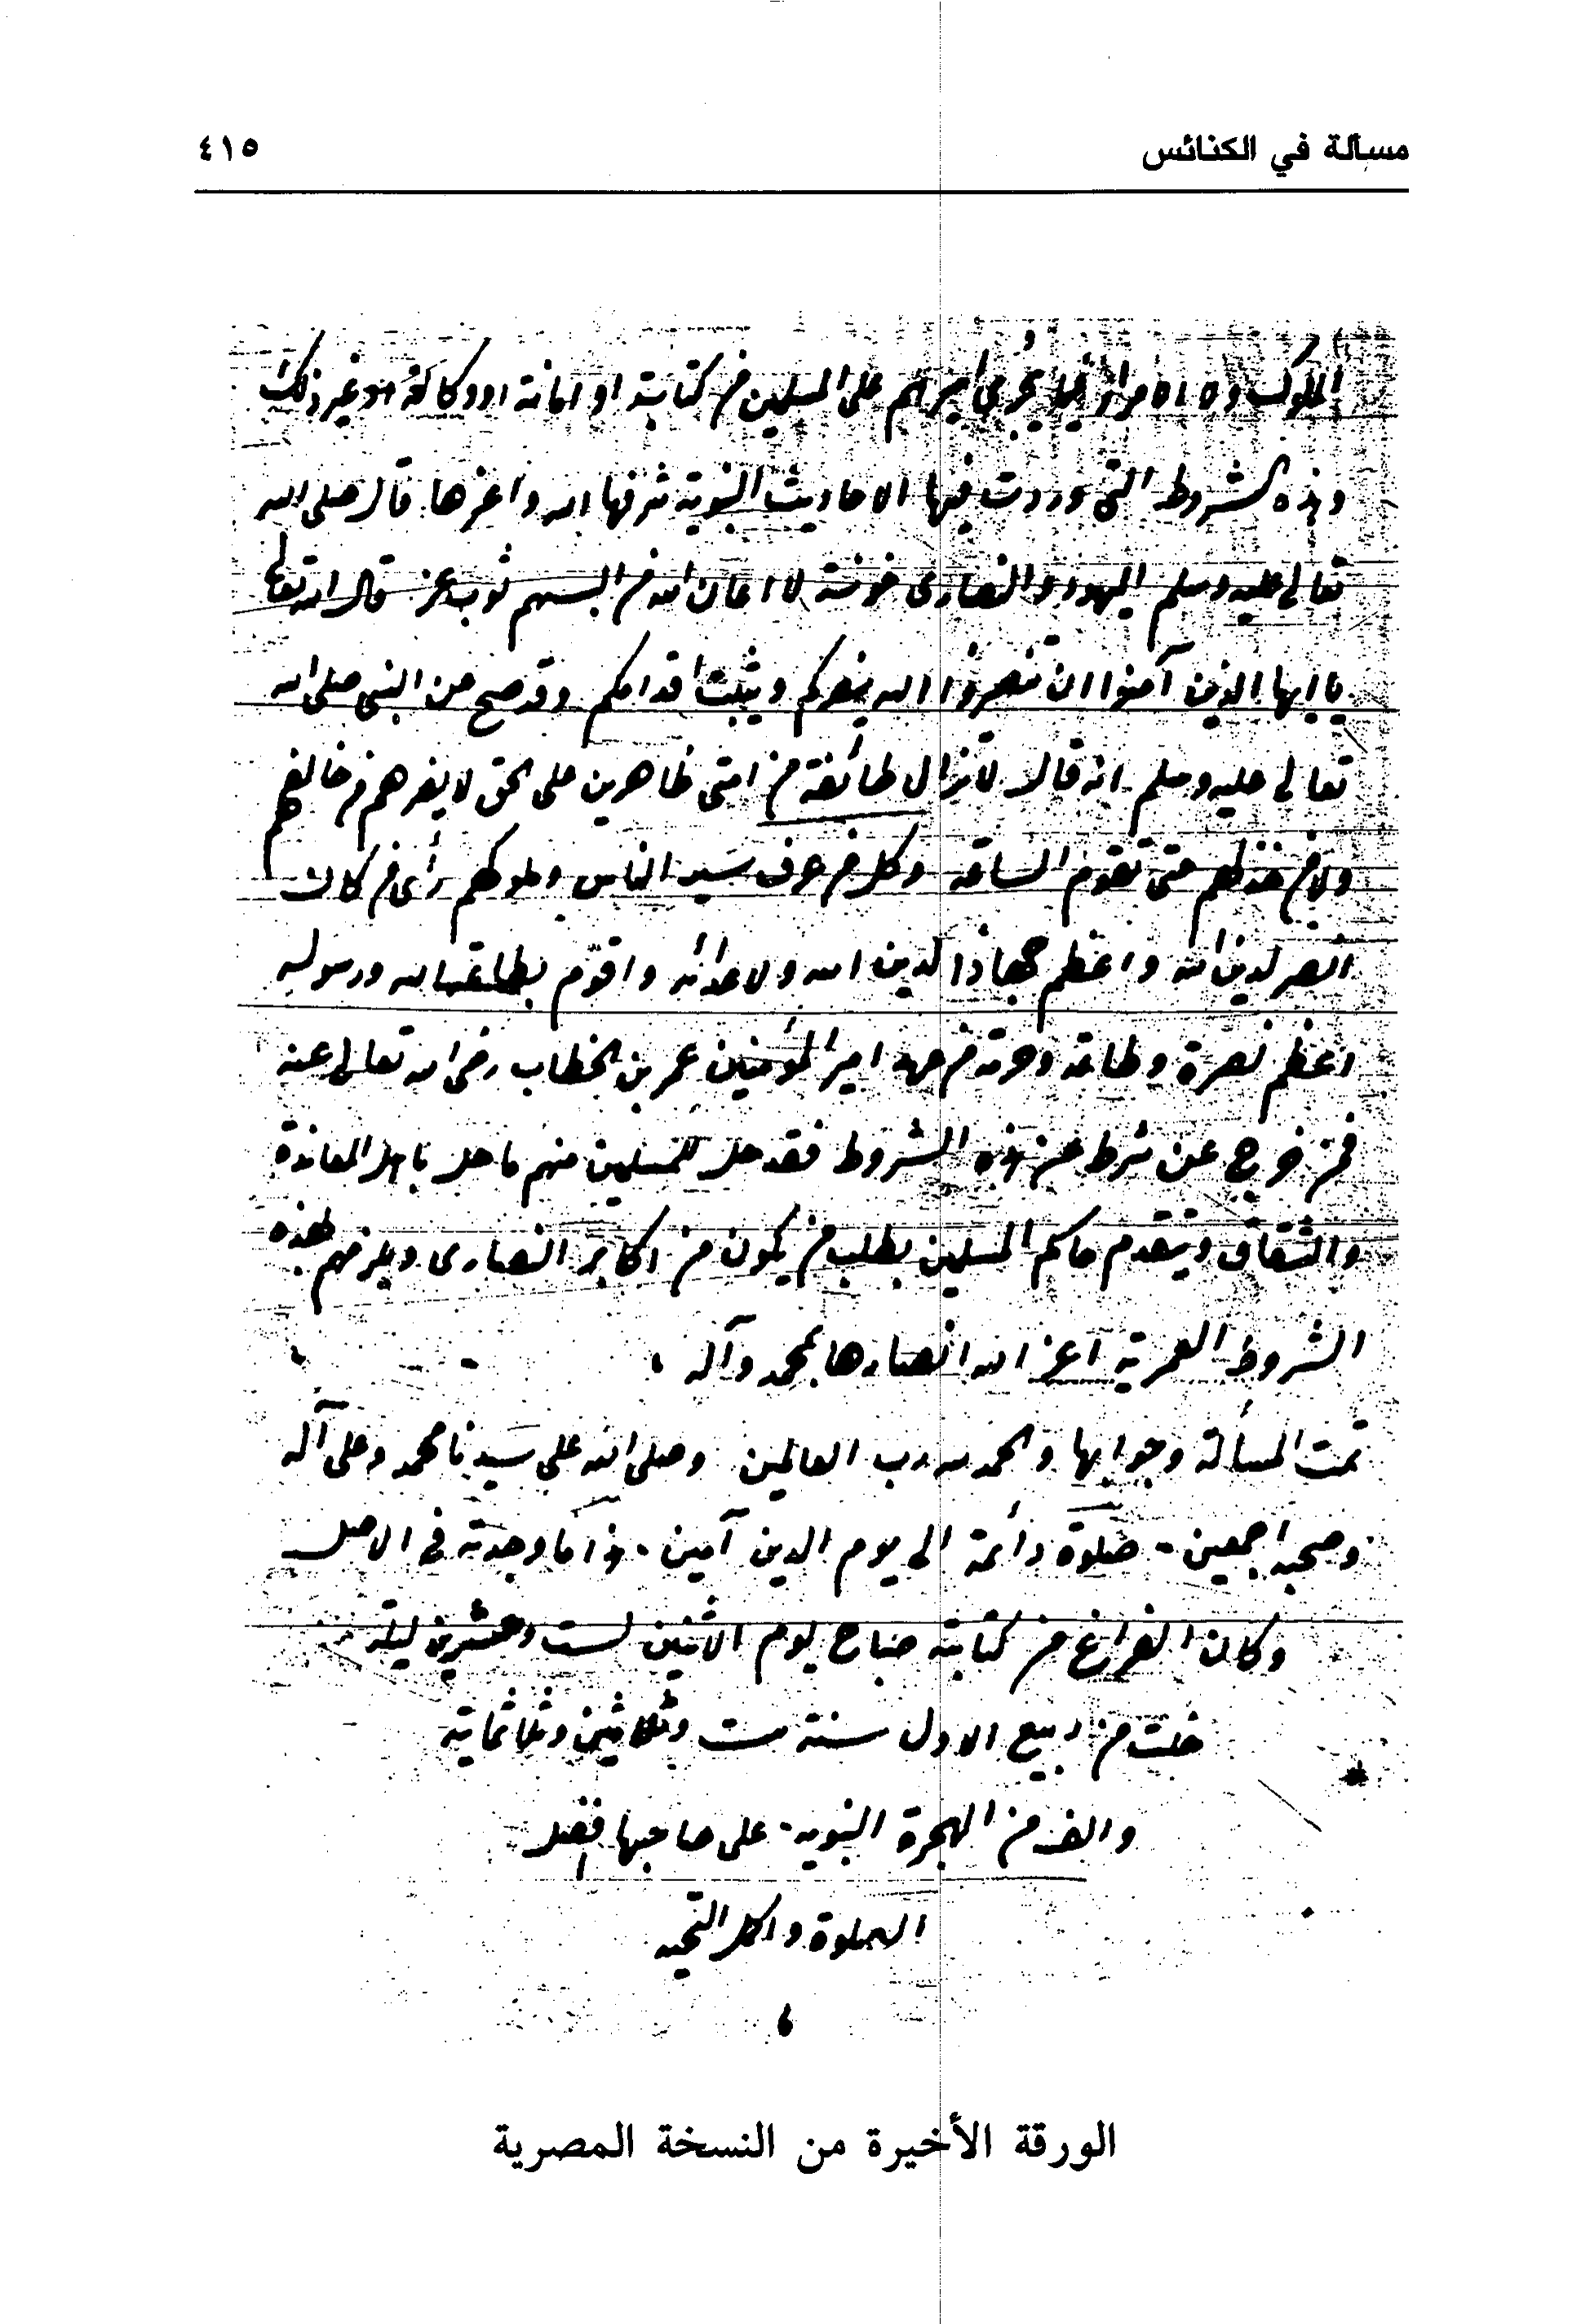 مسألة في الكنائس
٤١٥
الملوك ولا الامراء فيما يجري امرهم على المسلمين من كتابة او امانة او وكالة او غير ذلك
وهذه الشروط التى وردت فيها الاحاديث النبوية شرفها الله واعزها قال صلى الله
تعالى عليه وسلم اليهود والنصارى خونة لا اعان الله من البسهم ثوب عز قال الله تعالى
يا ايها الذين آمنوا ان تنصروا الله ينصركم ويثبت اقدامكم وقد صح عن النبى صلى الله
تعالى عليه وسلم انه قال لا تزال طائفة من امتى ظاهرين على الحق لا يضرهم من خالفهم
ولا من خذلهم حتى تقوم الساعة وكل من عرف سير الناس وملوكهم رأى من كان
انصر لدين الله واعظم جهادا لدين الله ولاعدائه واقوم بطاعة الله ورسوله
اعظم نصرة وطاعة وحرمة من عهد امير المؤمنين عمر بن الخطاب رضى الله تعالى عنه
فمن خرج عن شرط من هذه الشروط فقد حل للمسلمين منهم ما حل باهل المعاندة
والشقاق ويتقدم حاكم المسلمين بطلب من يكون من اكابر النصارى ويلزمهم بهذه
الشروط العمرية اعز الله انصارها بمحمد وآله
تمت المسألة وجوابها والحمد لله رب العالمين وصلى الله على سيدنا محمد وعلى آله
وصحبه اجمعين - صلوة دائمة الى يوم الدين آمين - هذا ما وجدته فى الاصل
وكان الفراغ من كتابته صباح يوم الاثنين لست وعشرين ليلة
خلت من ربيع الاول سنة ست وثلاثين وثلاثماية
والف من الهجرة النبويه - على صاحبها افضل
الصلوة واكمل التحيه
الورقة الأخيرة من النسخة المصرية